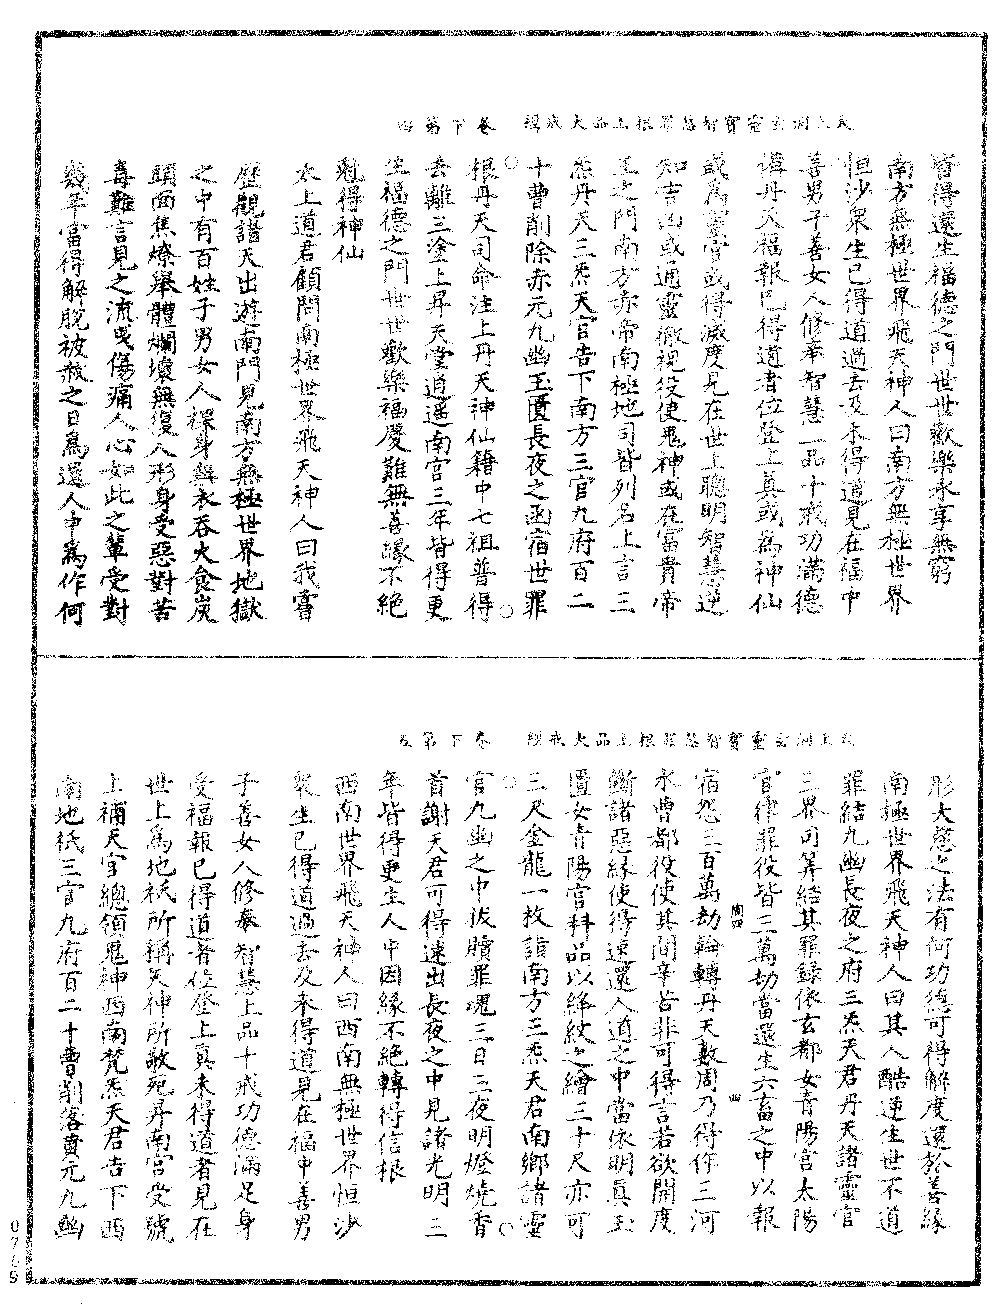 太上洞玄靈寶智慧罪根上品大戒經　卷下第四
皆得還生福德之門世世歡樂永享無窮
南方無極世界飛天神人曰南方無極世界
恒沙眾生已得道過去及未得道見在福中
善男子善女人修奉智慧上品十戒功滿德
備丹天福報已得道者位登上真或為神仙
或為靈官或得滅度見在世上聰明智慧逆
知吉凶或通靈徹視役使鬼神或在富貴帝
王之門南方赤帝南極地司皆列名上言三
炁丹天三炁天官告下南方三官九府百二
十曹削除赤元九幽玉匱長夜之函宿世罪
根丹天司命注上丹天神仙籍中七祖普得
去離三塗上昇天堂逍遙南宮三年皆得更
生福德之門世世歡樂福慶難無善緣不絕
剋得神仙
太上道君顧問南極世界飛天神人曰我嘗
歷觀諸天出遊南門見南方無極世界地獄
之中有百姓子男女人裸身無衣吞火食炭
頭面焦燎舉體爛壞無復人形身受惡對苦
毒難言見之流曳傷痛人心如此之輩受對
幾年當得解脫被赦之日為還人中為作何
太上洞玄靈寶智慧罪根上品大戒經　卷下第五
形大慈之法有何功德可得解度還於善緣
南極世界飛天神人曰其人酷逆生世不道
罪結九幽長夜之府三炁天君丹天諸靈官
三界司筭結其罪錄依玄都女青陽宮太陽
官律罪役皆三萬劫當還生六畜之中以報
宿怨三百萬劫輪轉丹天數周乃得作三河
水曹都役使其間辛苦非可得言若欲開度
斷諸惡緣使得速還人道之中當依明真玉
匱女青陽宮科品以絳紋之繒三十尺亦可
三尺金龍一枚詣南方三炁天君南鄉諸靈
官九幽之中拔贖罪魂三日三夜明燈燒香
首謝天君可得速出長夜之中見諸光明三
年皆得更生人中因緣不絕轉得信根
西南世界飛天神人曰西南無極世界恒沙
眾生已得道過去及未得道見在福中善男
子善女人修奉智慧上品十戒功德滿足身
受福報已得道者位登上真未得道者見在
世上為地祇所稱天神所敬死昇南宮受號
上補天官總領鬼神西南梵炁天君告下西
南地祇三官九府百二十曹削落黃元九幽
四
0765